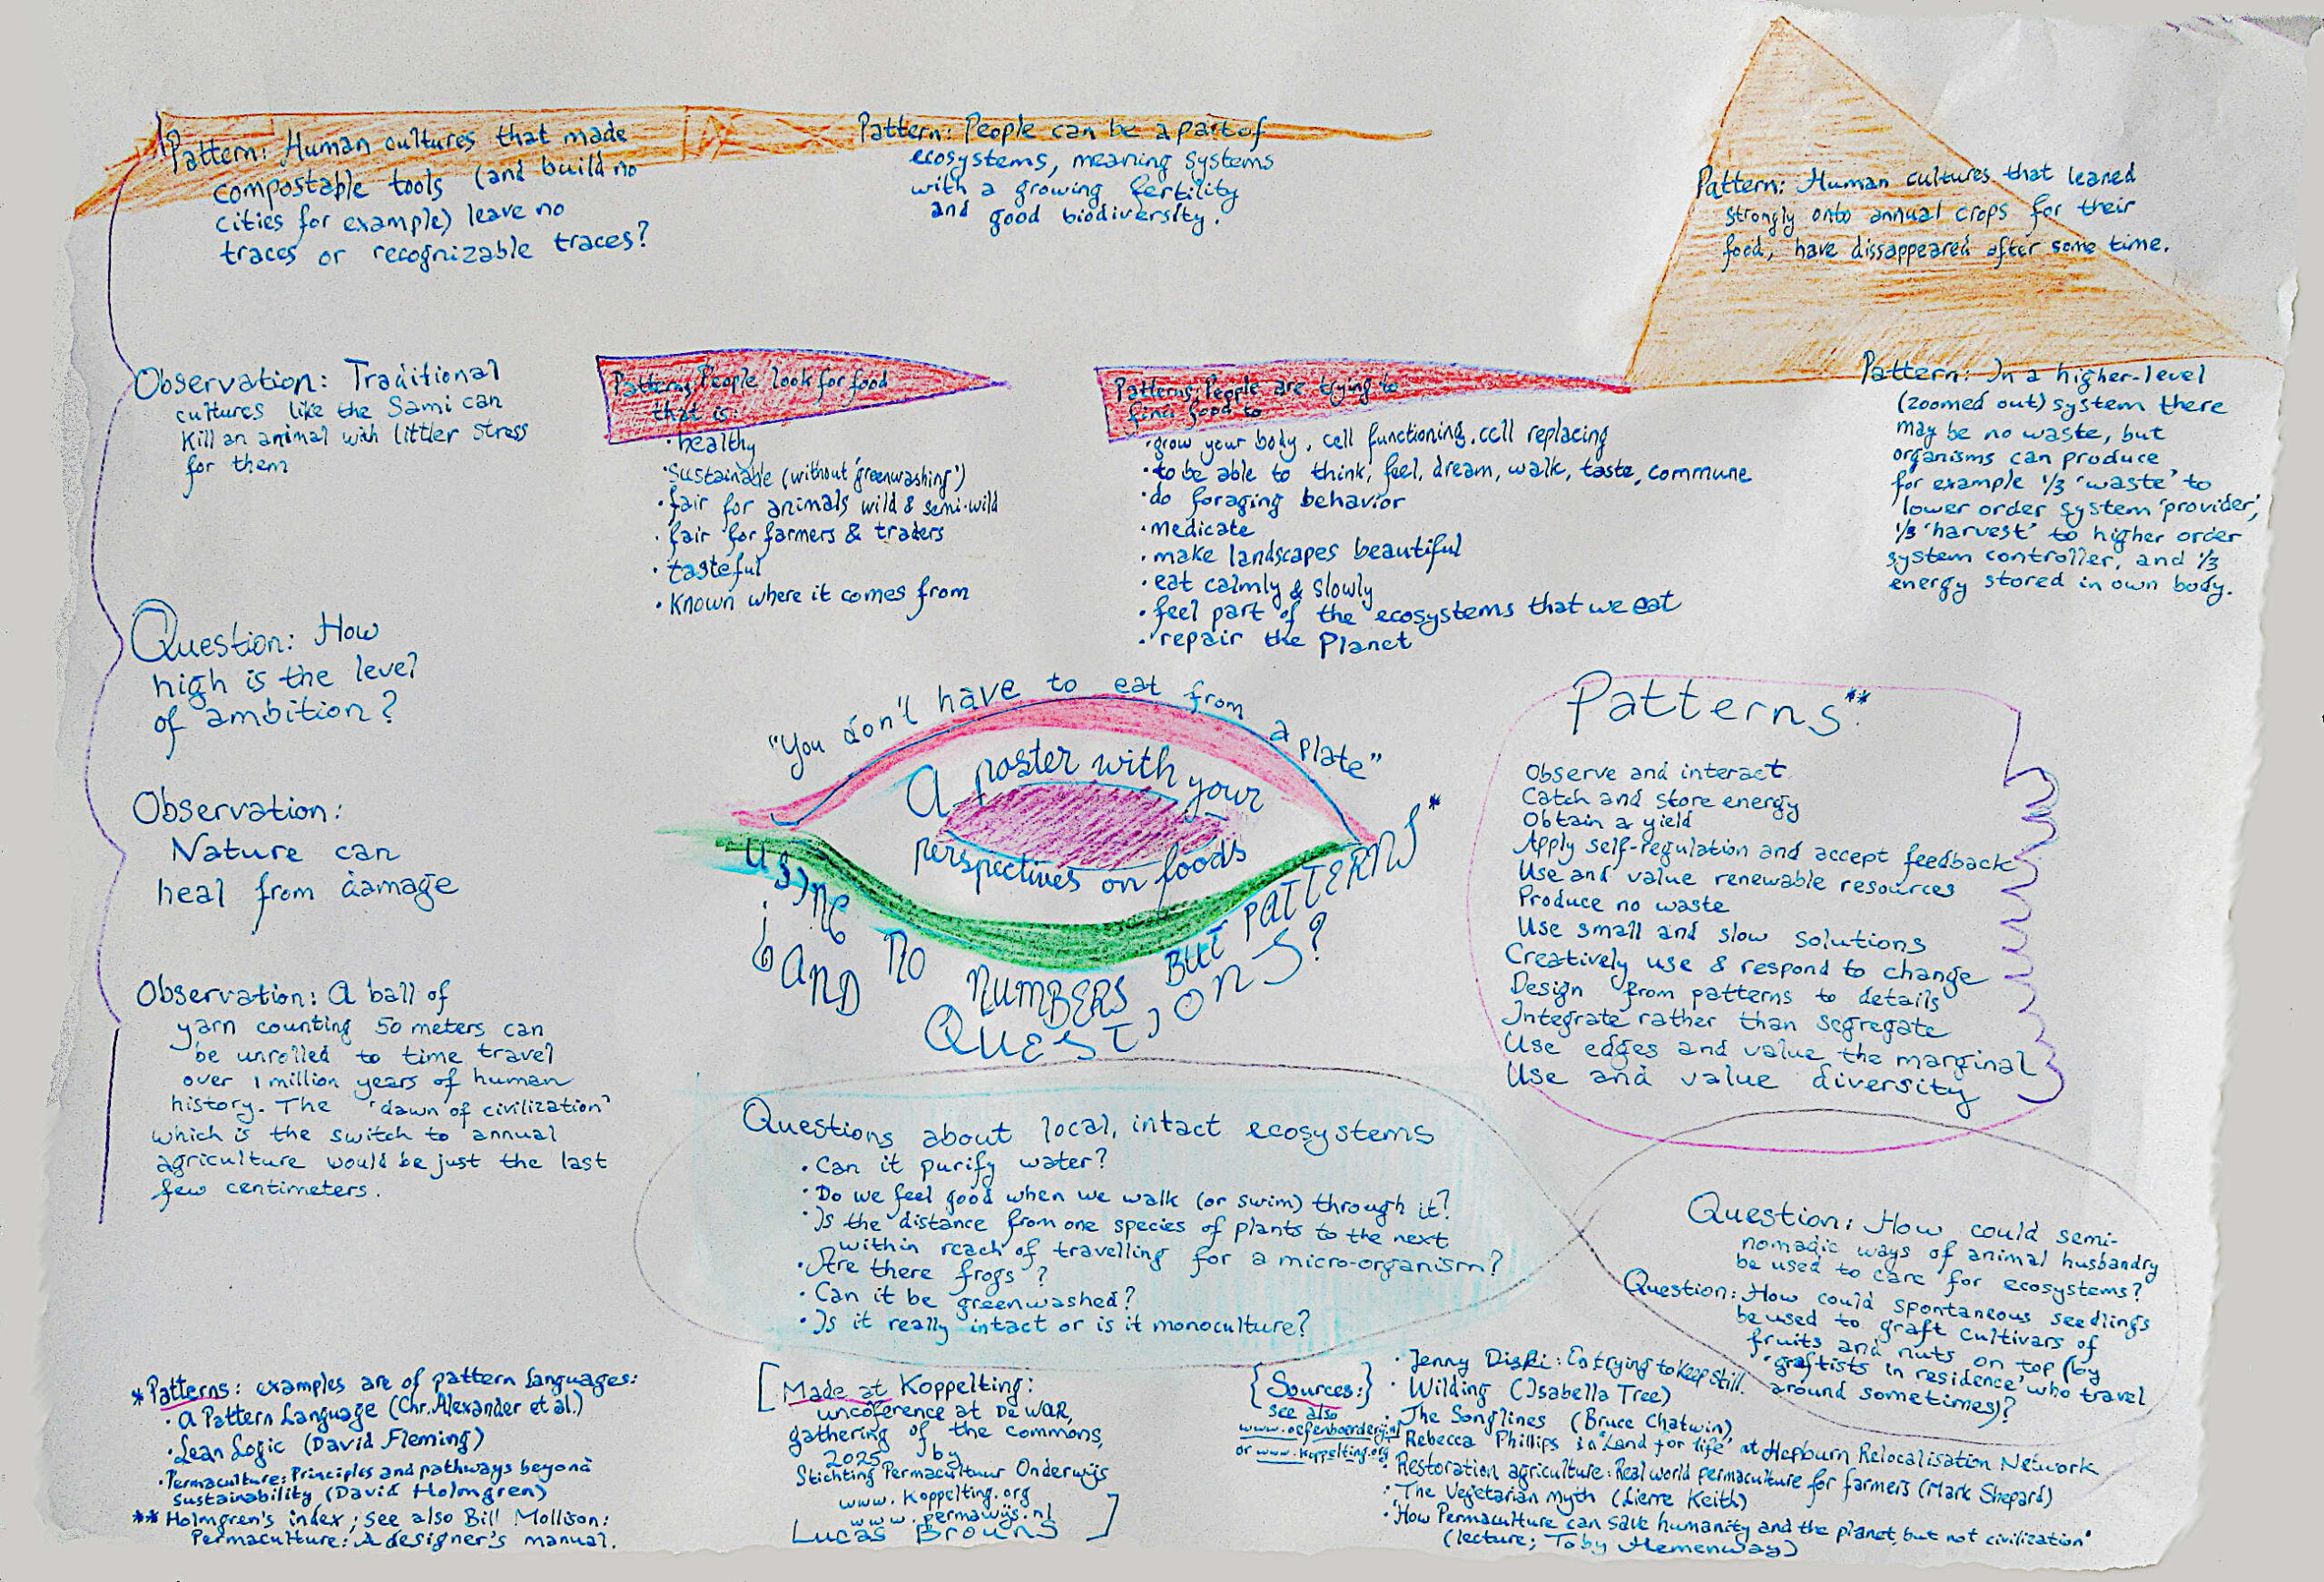 Pattern: Human cultures that made
compostable tools (and build no
cities for example) leave no
traces or recognizable traces?
Pattern: People can be a part of
ecosystems, meaning systems
with a growing fertility
and good biodiversity.
Pattern: Human cultures that leaned
strongly onto annual crops for their
food, have dissappeared after some time.
Observation: Traditional
cultures like the Sami can
kill an animal with littler stress
for them
Patterns: People look for food
that is:
• healthy
• Sustainable (without 'greenwashing')
• fair for animals wild & semi-wild
• fair for farmers & traders
• tasteful
• Known where it comes from
Patterns: People are trying to
find food to
• grow your body, cell functioning, cell replacing
• to be able to think, feel, dream, walk, taste, commune
• do foraging behavior
• medicate
• make landscapes beautiful
• eat calmly & slowly
• feel part of the ecosystems that we eat
• repair the Planet
Pattern: In a higher-level
(zoomed out) system there
may be no waste, but
organisms can produce
for example 1/3 'waste' to
lower order system 'provider',
1/3 'harvest' to higher order
system controller, and 1/3
energy stored in own body.
Question: How
high is the level
of ambition?
Observation:
Nature can
heal from damage
Observation: A ball of
yarn counting 50 meters can
be unrolled to time travel
over 1 million years of human
history. The 'dawn of civilization'
which is the switch to annual
agriculture would be just the last
few centimeters.
"You don't have to eat from a plate"
A poster with your
perspectives on foods
using no numbers but patterns*
¿ and questions?
Patterns**:
Observe and interact
Catch and store energy
Obtain a yield
Apply self-regulation and accept feedback
Use and value renewable resources
Produce no waste
Use small and slow solutions
Creatively use & respond to change
Design from patterns to details
Integrate rather than segregate
Use edges and value the marginal
Use and value diversity
Questions about local, intact ecosystems
• Can it purify water?
• Do we feel good when we walk (or swim) through it?
• Is the distance from one species of plants to the next
within reach of travelling for a micro-organism?
• Are there frogs?
• Can it be greenwashed?
• Is it really intact or is it monoculture?
Question: How could semi-
nomadic ways of animal husbandry
be used to care for ecosystems?
Question: How could spontaneous seedlings
be used to graft cultivars of
fruits and nuts on top (by
'graftists in residence' who travel
around sometimes)?
*Patterns: examples are of pattern languages:
• A Pattern Language (Chr. Alexander et al.)
• Lean Logic (David Fleming)
• Permaculture: Principles and pathways beyond
Sustainability (David Holmgren)
** Holmgren's index; see also Bill Mollison:
Permaculture: A designer's manual.
[Made at Koppelting:
unconference at De WAR,
gathering of the commons,
2025 by
Stichting Permacultuur Onderwijs
www.koppelting.org
www.permawijs.nl
Lucas Brouns]
{Sources:}
see also
or www.koppelting.org
• Jenny Diski: On trying to keep still.
• Wilding (Isabella Tree)
• The Songlines (Bruce Chatwin)
• Rebecca Phillips in 'Land for life' at Hepburn Relocalisation Network
• Restoration agriculture: Real world permaculture for farmers (Mark Shepard)
• The Vegetarian Myth (Lierre Keith)
• 'How Permaculture can save humanity and the planet, but not civilization'
(lecture; Toby Hemenway)